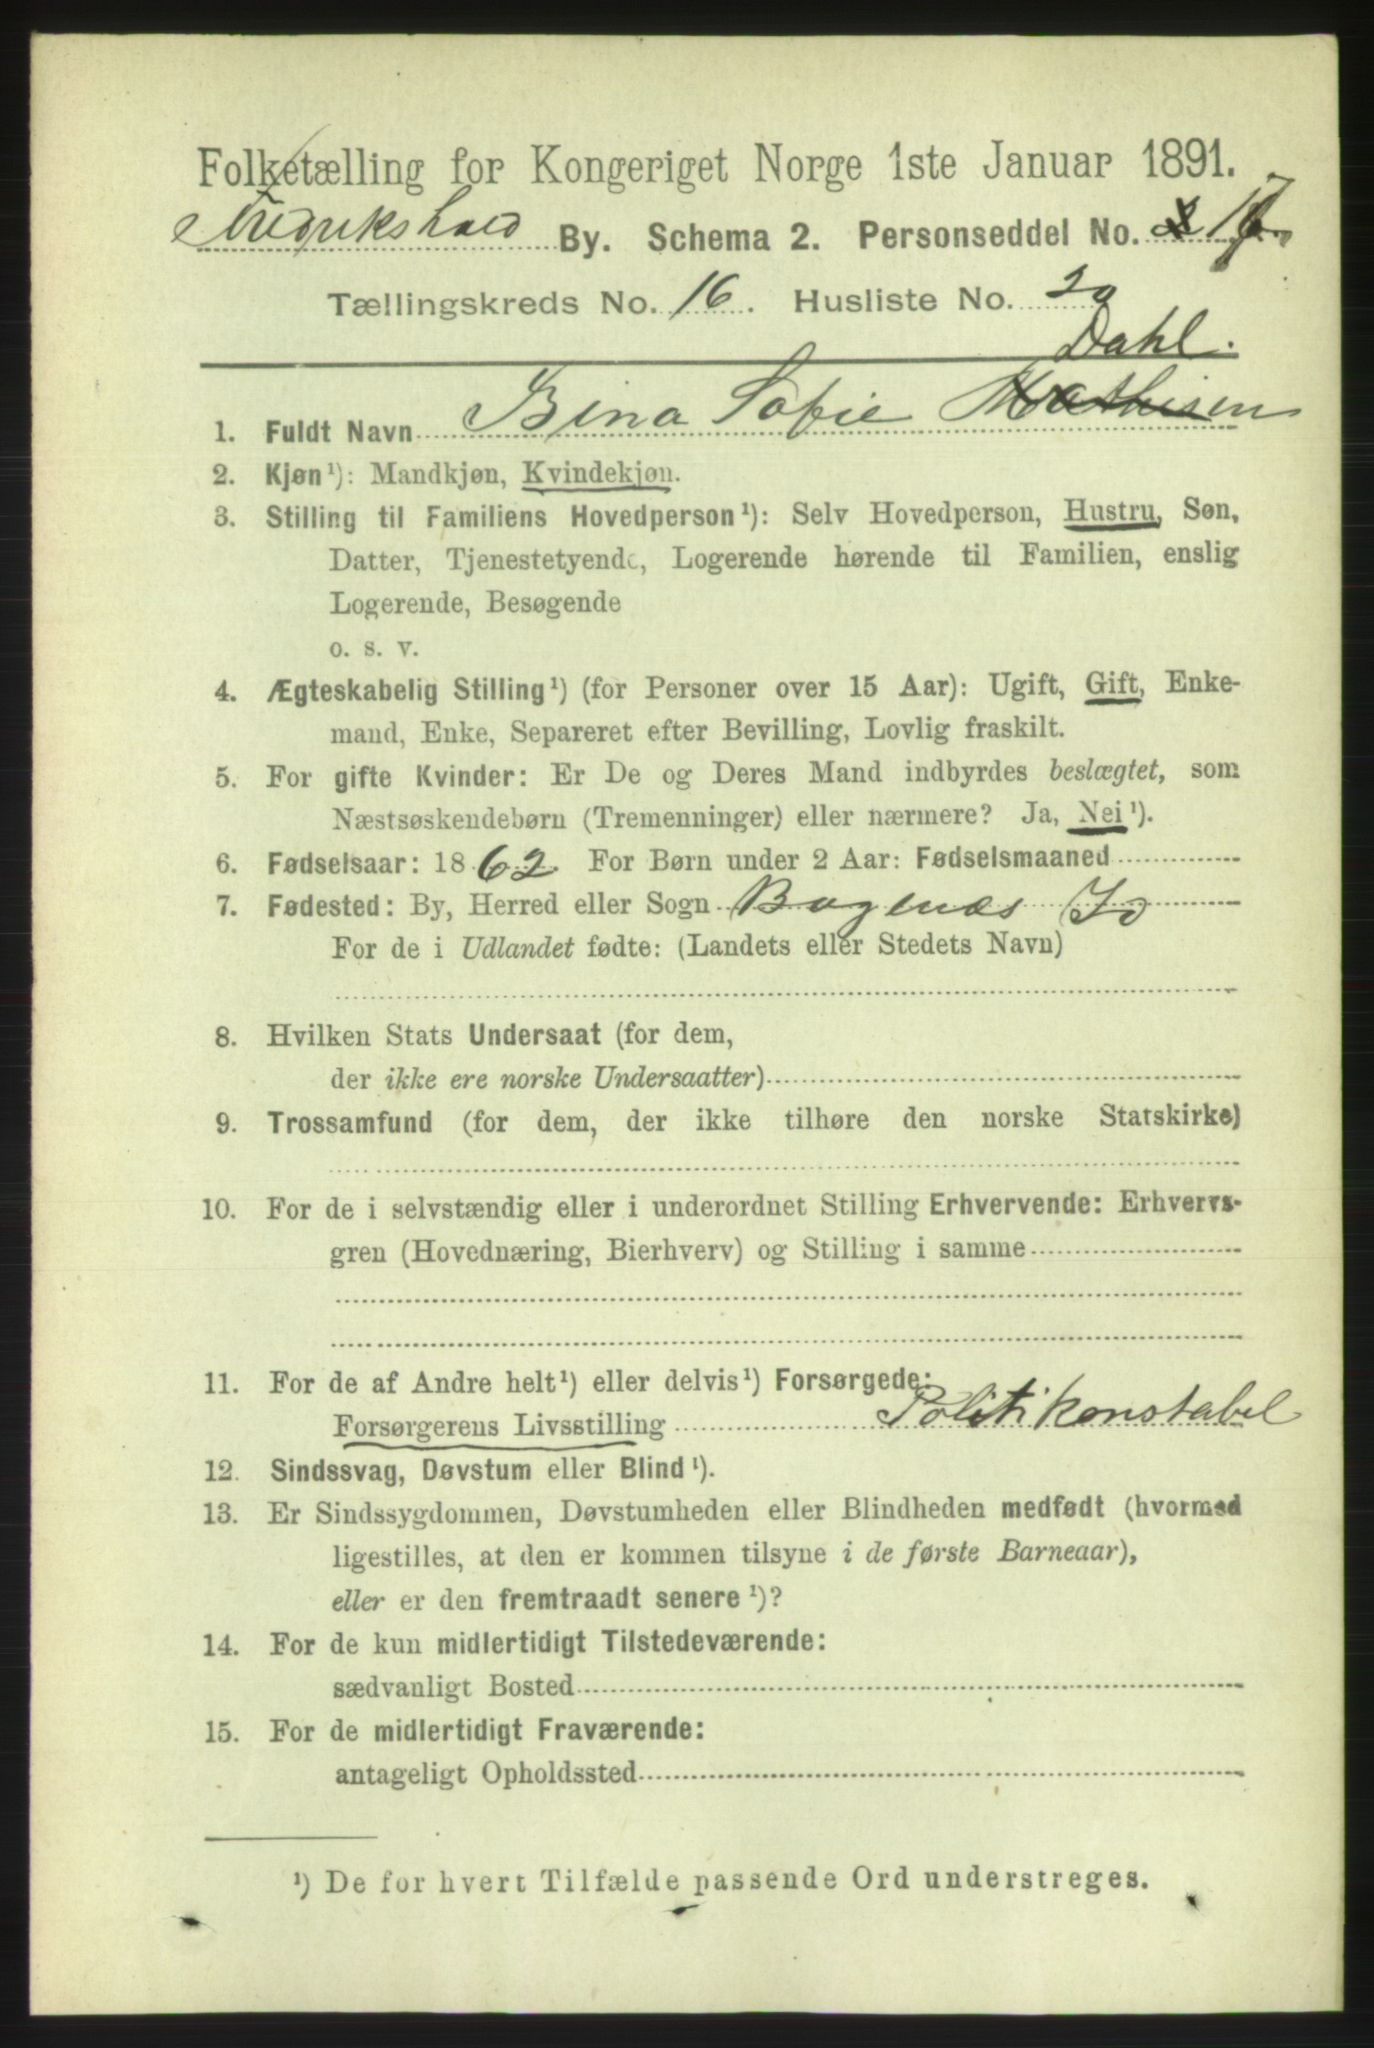 Folketælling for Kongeriget Norge 1ste Januar 1891.
Fredrikshald By. Schema 2. Personseddel No. 17
Tællingskreds No. 16. Husliste No. 20
Dahl.
1. Fuldt Navn Bina Sofie Mathisen
2. Kjøn¹): Mandkjøn, Kvindekjøn.
3. Stilling til Familiens Hovedperson¹): Selv Hovedperson, Hustru, Søn,
Datter, Tjenestetyende, Logerende hørende til Familien, enslig
Logerende, Besøgende
o. s. v.
4. Ægteskabelig Stilling¹) (for Personer over 15 Aar): Ugift, Gift, Enke-
mand, Enke, Separeret efter Bevilling, Lovlig fraskilt.
5. For gifte Kvinder: Er De og Deres Mand indbyrdes beslægtet, som
Næstsøskendebørn (Tremenninger) eller nærmere? Ja, Nei¹).
6. Fødselsaar: 1862. For Børn under 2 Aar: Fødselsmaaned
7. Fødested: By, Herred eller Sogn Bagnæs Id
For de i Udlandet fødte: (Landets eller Stedets Navn)
8. Hvilken Stats Undersaat (for dem,
der ikke ere norske Undersaatter)
9. Trossamfund (for dem, der ikke tilhøre den norske Statskirke)
10. For de i selvstændig eller i underordnet Stilling Erhvervende: Erhvervs-
gren (Hovednæring, Bierhverv) og Stilling i samme
11. For de af Andre helt¹) eller delvis¹) Forsørgede:
Forsørgerens Livsstilling Politikonstabel
12. Sindssvag, Døvstum eller Blind¹).
13. Er Sindssygdommen, Døvstumheden eller Blindheden medfødt (hvormed
ligestilles, at den er kommen tilsyne i de første Barneaar),
eller er den fremtraadt senere¹)?
14. For de kun midlertidigt Tilstedeværende:
sædvanligt Bosted
15. For de midlertidigt Fraværende:
antageligt Opholdssted
¹) De for hvert Tilfælde passende Ord understreges.